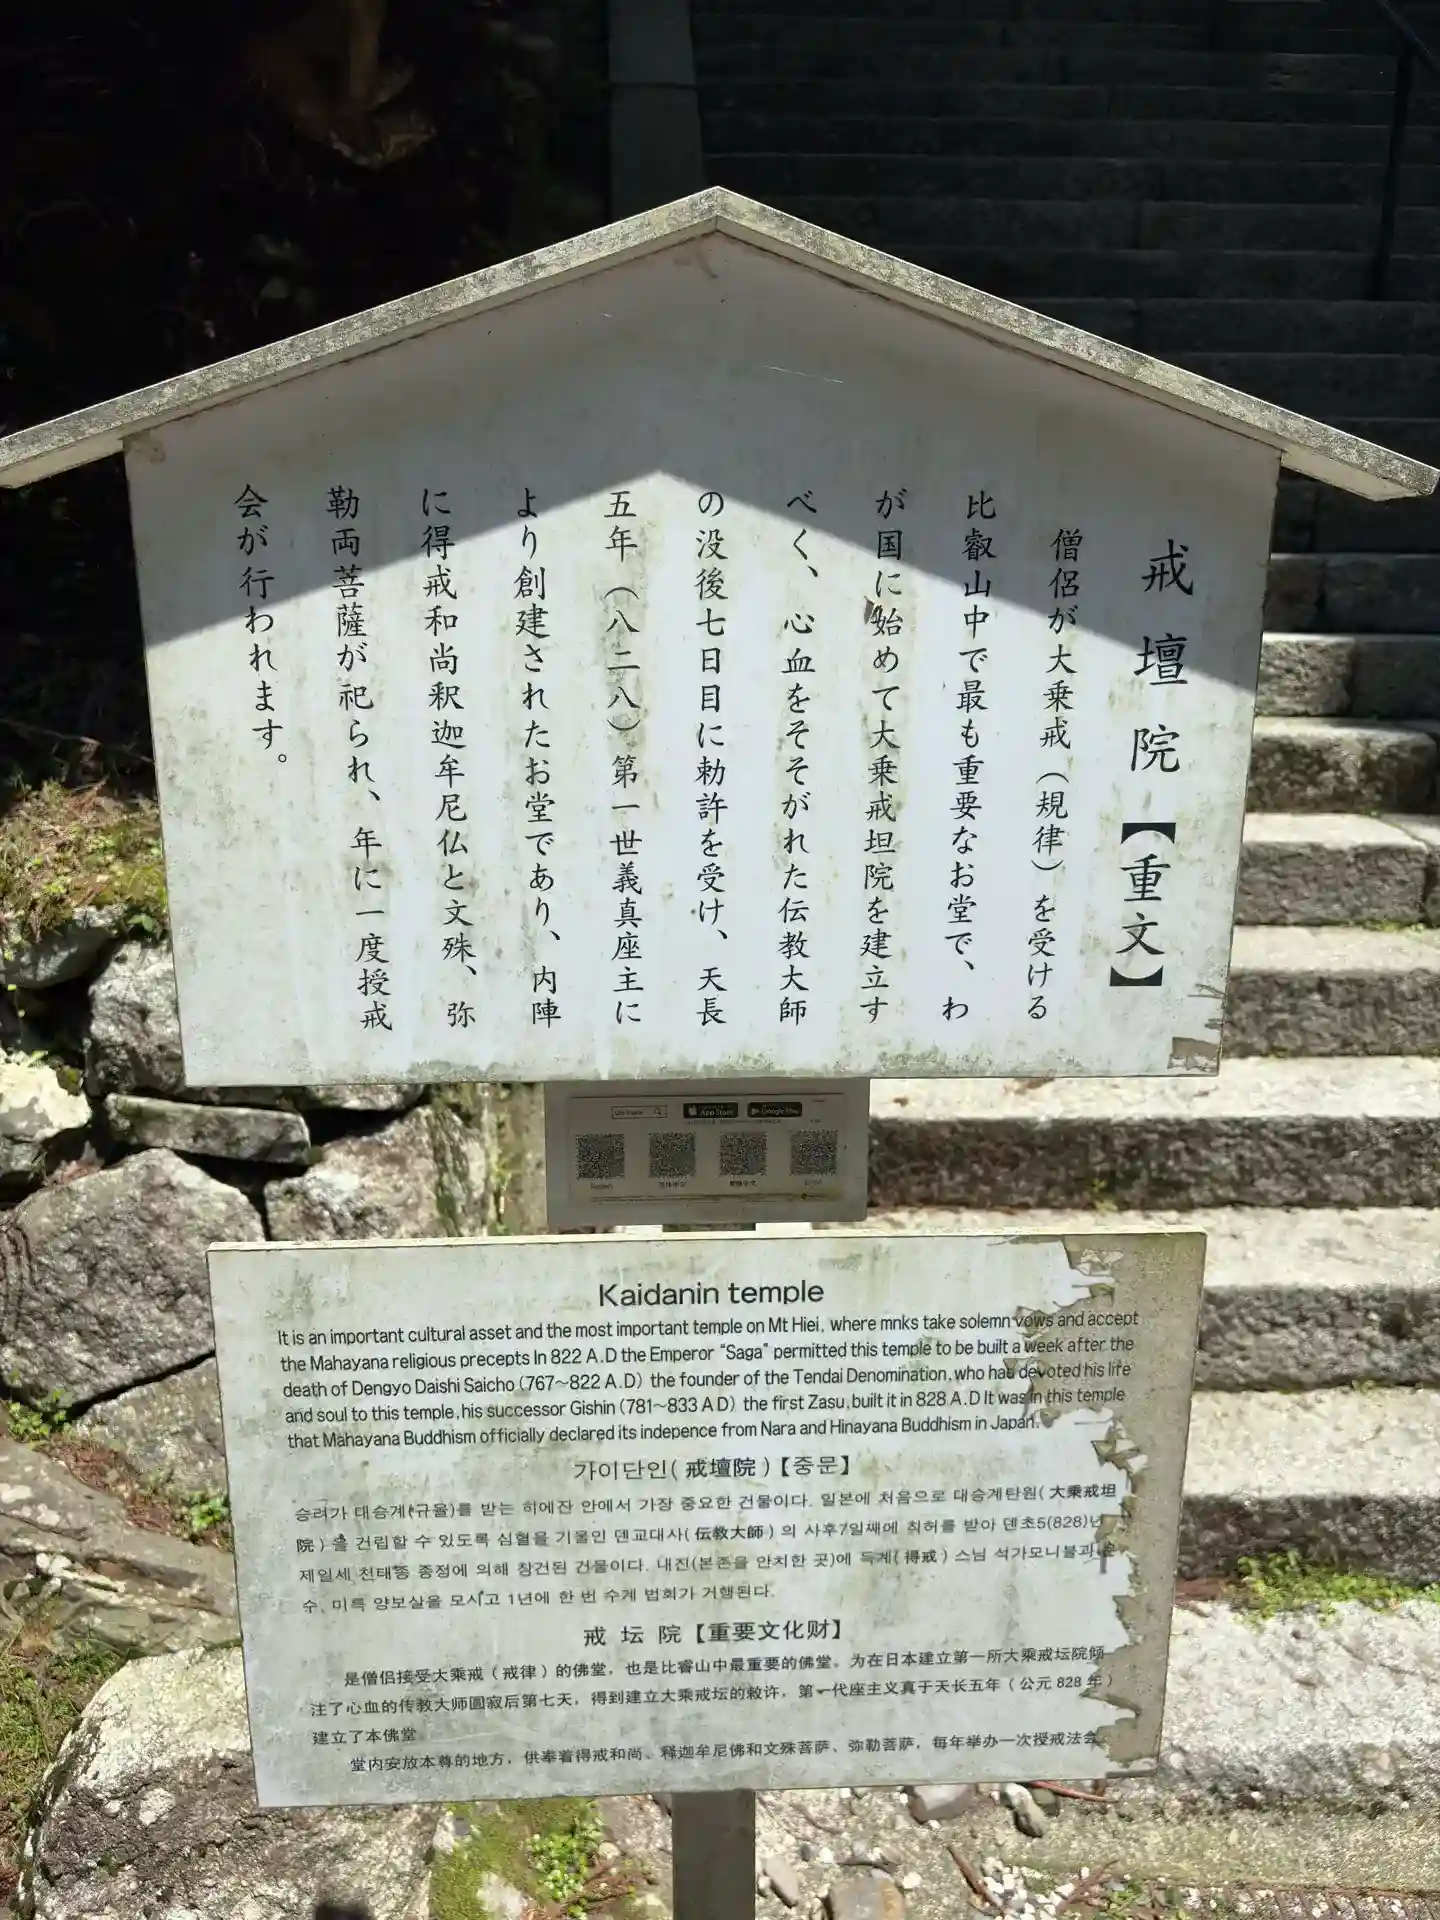 戒壇院【重文】
僧侶が大乗戒（規律）を受ける
比叡山中で最も重要なお堂で、わ
が国に始めて大乗戒坦院を建立す
べく、心血をそそがれた伝教大師
の没後七日目に勅許を受け、天長
五年（八二八）第一世義真座主に
より創建されたお堂であり、内陣
に得戒和尚釈迦牟尼仏と文殊、弥
勒両菩薩が祀られ、年に一度授戒
会が行われます。
App Store Google Play
English 简体中文 繁體中文
Kaidanin temple
It is an important cultural asset and the most important temple on Mt Hiei, where mnks take solemn vows and accept
the Mahayana religious precepts In 822 A.D the Emperor “Saga” permitted this temple to be built a week after the
death of Dengyo Daishi Saicho (767~822 A.D) the founder of the Tendai Denomination, who has devoted his life
and soul to this temple, his successor Gishin (781~833 A D) the first Zasu, built it in 828 A.D It was in this temple
that Mahayana Buddhism officially declared its indepence from Nara and Hinayana Buddhism in Japan.
가이단인( 戒壇院 )【중문】
승려가 대승계(규율)를 받는 히에잔 안에서 가장 중요한 건물이다. 일본에 처음으로 대승계탄원( 大乗戒坦
院 ) 을 건립할 수 있도록 심혈을 기울인 덴교대사( 伝教大師 ) 의 사후7일째에 칙허를 받아 덴초5(828)년
제일세 천태종 종정에 의해 창건된 건물이다. 내진(본존을 안치한 곳)에 득계( 得戒 ) 스님 석가모니불과
수, 미륵 양보살을 모시고 1년에 한 번 수계 법회가 거행된다.
戒 坛 院【重要文化财】
是僧侣接受大乘戒（戒律）的佛堂，也是比睿山中最重要的佛堂。为在日本建立第一所大乘戒坛院倾
注了心血的传教大师圆寂后第七天，得到建立大乘戒坛的敕许，第一代座主义真于天长五年（公元 828 年）
建立了本佛堂
堂内安放本尊的地方，供奉着得戒和尚、释迦牟尼佛和文殊菩萨、弥勒菩萨，每年举办一次授戒法会